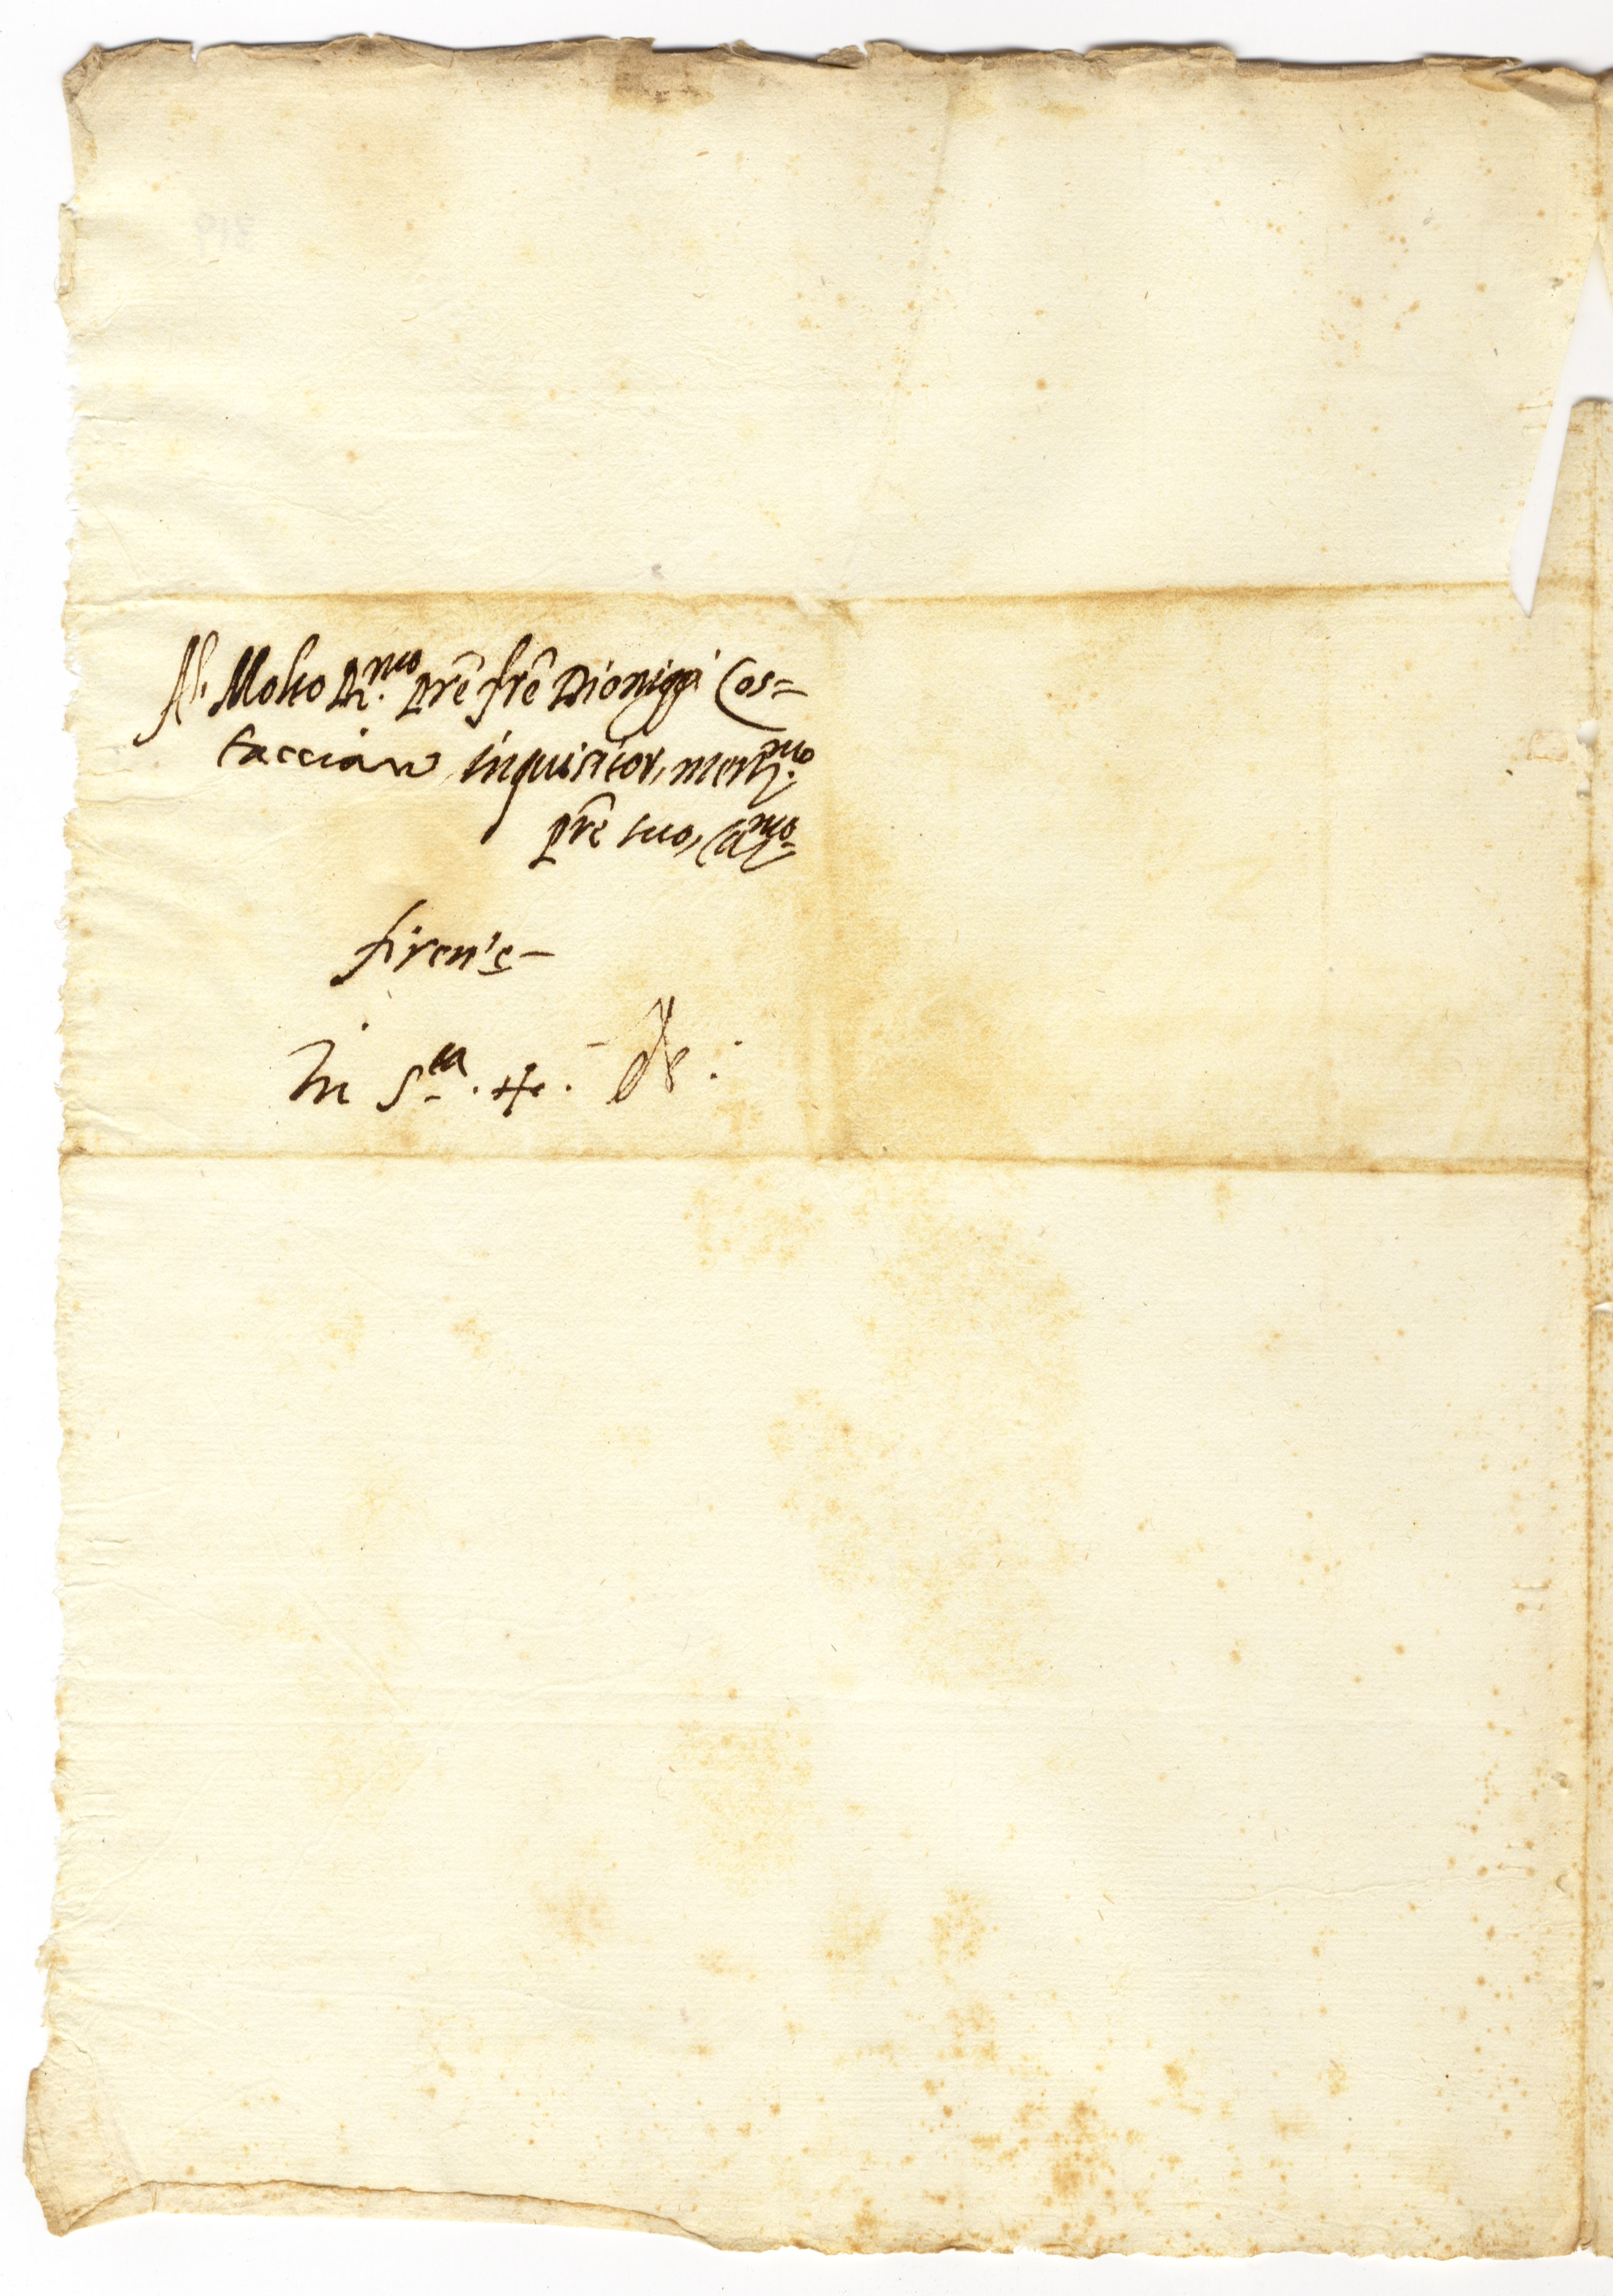 Al Molto R.mo pre fre Dionigi Cos=
tacciaro inquisitor, merit.mo
pre suo, Car.mo
firenze
In S.ta . +. de :